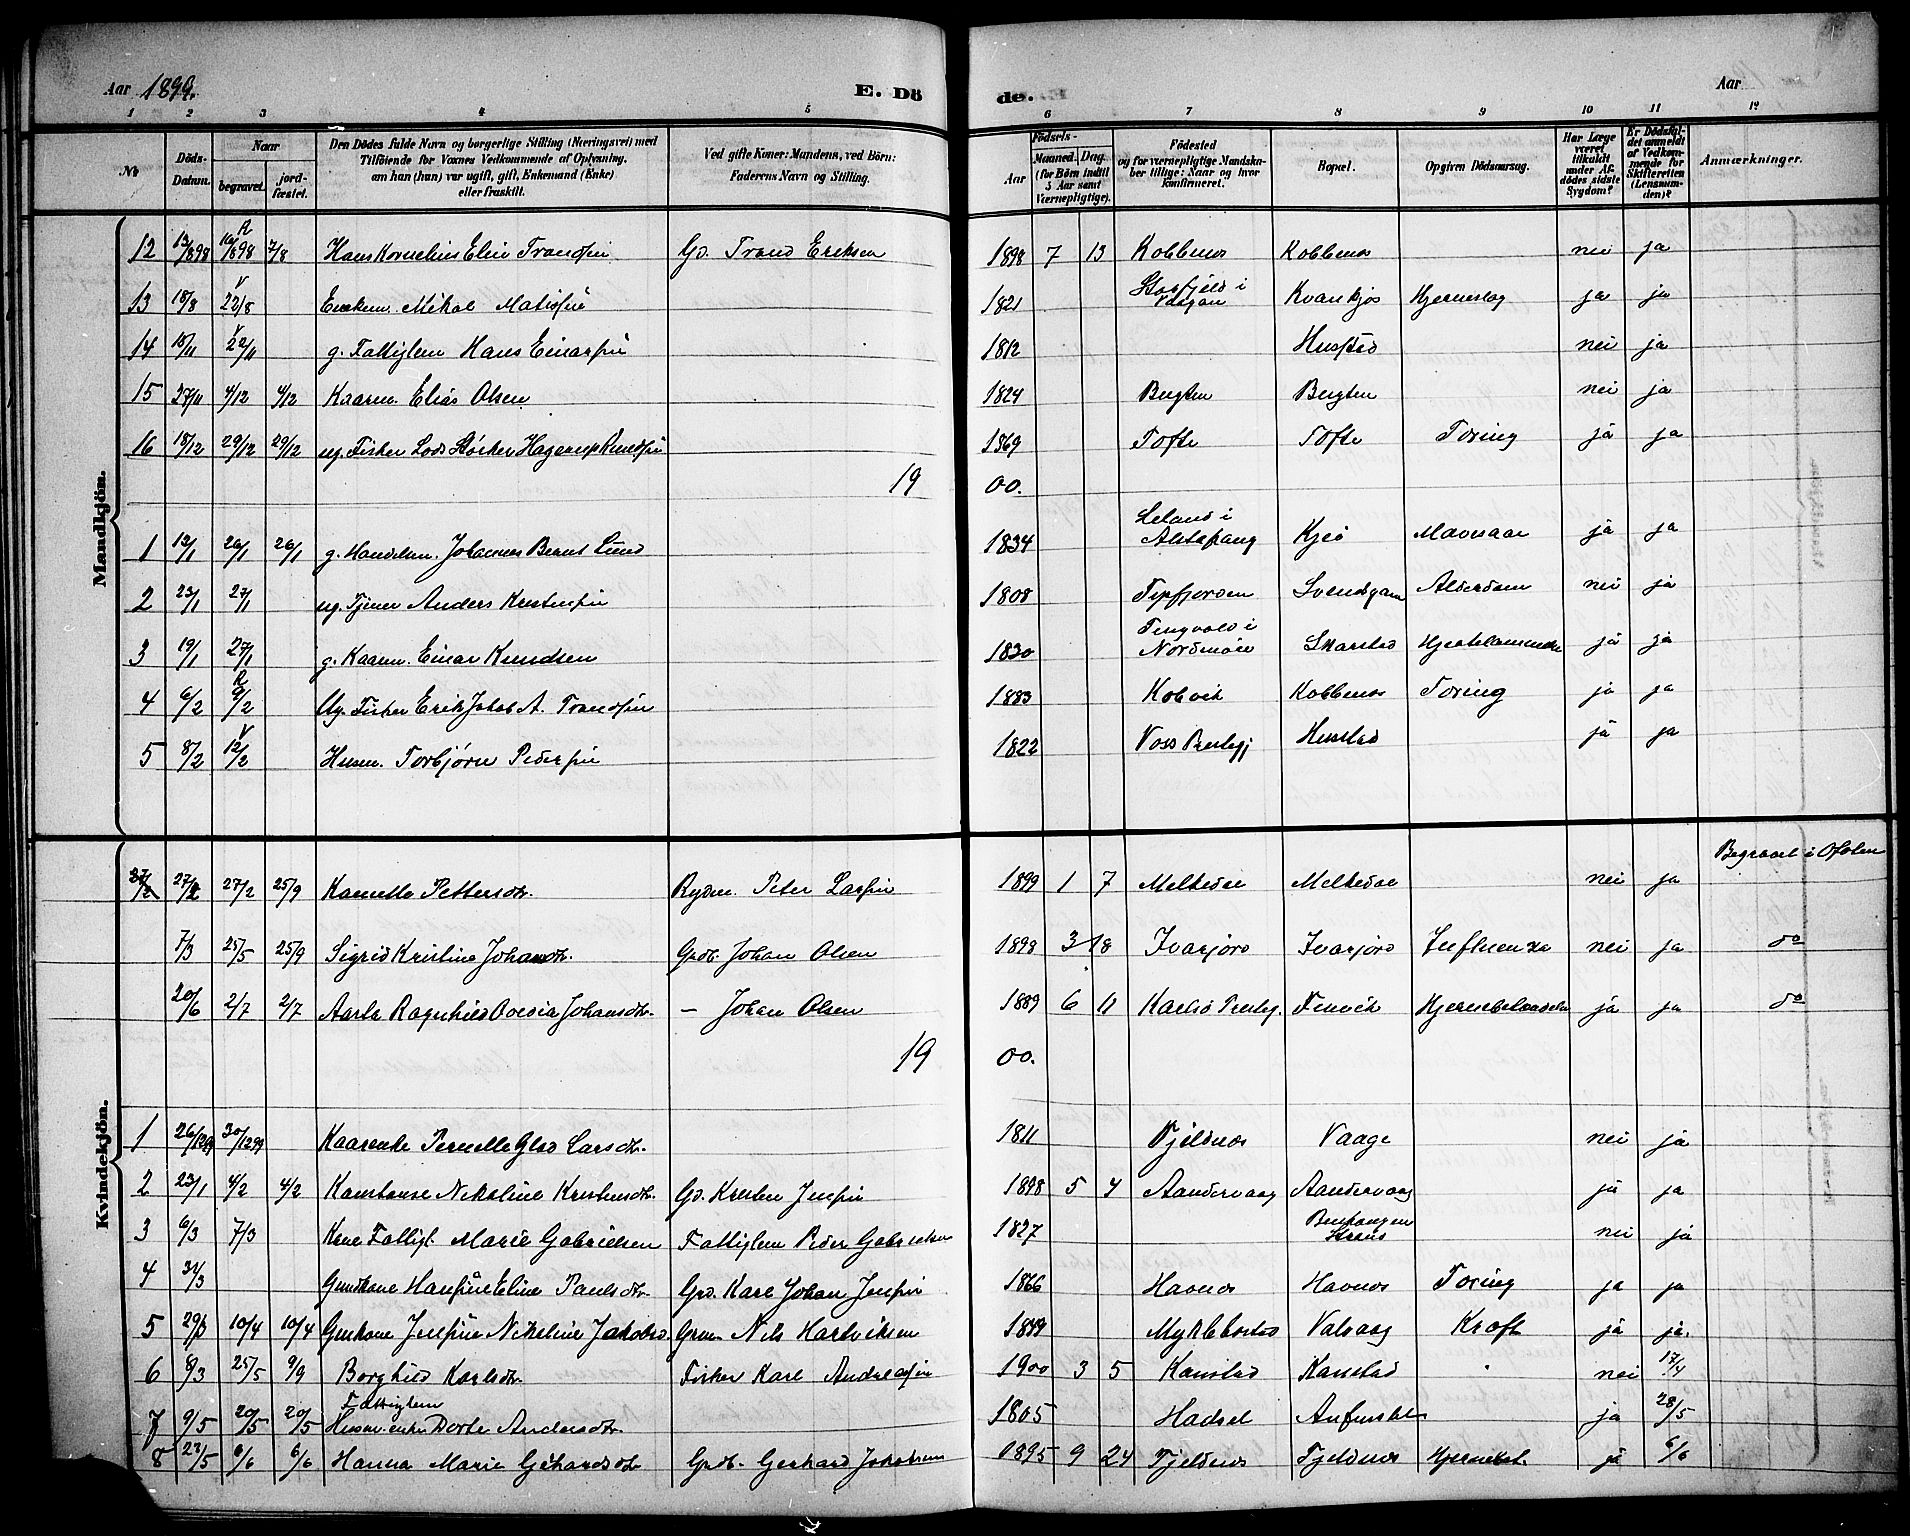 Aar 1899. E. Dö de. Aar
1 2 3 4 5 6 7 8 9 10 11 12
№
Döds-Datum.
Naar
begravet.
jordfæstet.
Den Dödes fulde Navn og borgerlige Stilling (Næringsvei) med
Tilföiende for Voxnes Vedkommende af Oplysning,
om han (hun) var ugift, gift, Enkemand (Enke)
eller fraskilt.
Ved gifte Koner: Mandens, ved Börn:
Faderens Navn og Stilling.
Födsels-
Aar
Maaned. Dag.
(for Börn indtil
5 Aar samt
Værnepligtige).
Födested
og for værnepligtige Mandska-
ber tillige: Naar og hvor
konfirmeret.
Bopæl.
Opgiven Dödsaarsag.
Har Læge
været
tilkaldt
under Af-
dödes sidste
Sygdom?
Er Dödsfal-
det anmeldt
af Vedkom-
mende for
Skifteretten
(Lensman-
den)?
Anmærkninger.
Mandkjön.
12 13/8 98 16/8 98 7/8 Hans Kornelius Elin Trondsen Gd. Trond Eriksen 1898 7 13 Kobbenes Kobbenes nei ja
13 18/8 22/8 Enkem. Mikal Matisen 1821 Storfjeld i Vaagan Kvankjos Hjerneslag ja ja
14 18/11 22/11 g. Fattiglem Hans Einarsen 1812 Husstad nei ja
15 27/11 4/12 4/12 Kaarm. Elias Olsen 1824 Bergten Bergten nei ja
16 18/12 29/12 29/12 ug. Fisker Hagerup Knudsen 1869 Tofte Tofte Tæring ja ja
19 00.
1 12/1 26/1 26/1 g. Handelsm. Johannes Bernt Lund 1834 Leland i Alstahaug Kjeø Mavesaar ja ja
2 23/1 27/1 ug. Tjener Anders Kristensen 1808 Tysfjorden Alderdom nei ja
3 19/1 27/1 g. Kaarm. Einar Knudsen 1830 Tingvold i Nordmøre Skarstad Hjertelammelse ja ja
4 6/2 9/2 Ug. Fisker Erik Jakob A. Trondsen 1883 Kobvik Kobbenes Tæring ja ja
5 8/2 12/2 Husm. Torbjørn Pedersen 1822 Voss Prestegj Husstad ja ja
Kvindekjön.
Begravet i Ofoten
27/2 27/2 27/2 25/9 Kamille Pettersdtr. Rydm. Peter Larsen 1899 1 7 Melkedae Melkedae nei ja
7/3 25/5 25/9 Sigrid Kristine Johansdtr. Grdb. Johan Olsen 1898 3 18 Ivarjord Ivarjord Influenza nei ja do
20/6 2/7 2/7 Aasta Ragnhild Johansdtr. — Johan Olsen 1889 6 11 Karlsø Prestg. Finvik ja ja do
19 00.
1 26/12 99 30/12 99 Kaarenke Pernelle Glad Larsdtr. 1811 Fjeldnes Vaage nei ja
2 23/1 4/2 4/2 Konstanse Nikoline Kristensdtr. Gd. Kristen Jensen 1898 5 4 Aandervaag Aandervaag ja ja
3 6/3 7/3 Kone Fattigl. Marie Gabrielsen Fattiglem Peder Gabrielsen 1827 nei ja
4 31/3 Gmdkone Hansine Eline Paulsdtr. Grd. Karl Johan Jensen 1866 Havnes Havnes Tæring ja ja
5 29/3 10/4 10/4 Gmkone Jensine Nikoline Jakobsd. Grm. Nils Hartviksen 1849 Myklebostad Valvaag Kræft ja ja.
6 8/3 25/5 9/9 Borghild Karlsdtr. Fisker Karl Andreassen 1900 3 5 Kanstad Kanstad nei 17/4
7 9/5 20/5 20/5 Fattiglem Husm. enke Dorte Andersdtr. 1805 Hadsel ja 28/5
8 23/5 6/6 6/6 Hanna Marie Gerhardsdtr. Grdb. Gerhard Johansen 1895 9 24 Fjeldnes Fjeldnes Hjernebet. ja 6/6